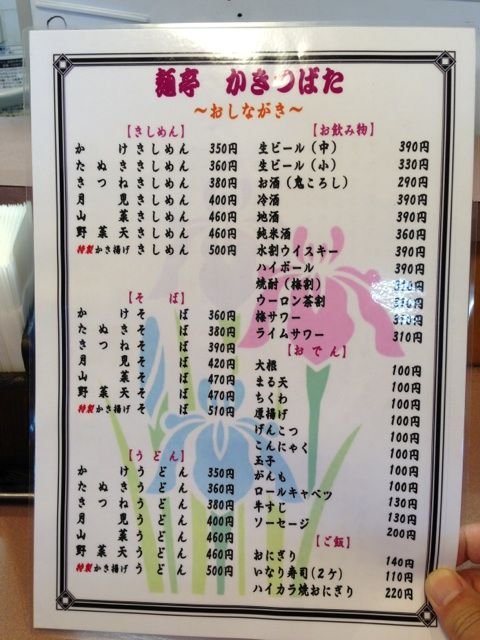 麺亭 かきつばた
～おしながき～
【きしめん】
かけきしめん 350円
たぬききしめん 360円
きつねきしめん 380円
月見きしめん 400円
山菜きしめん 460円
野菜天きしめん 460円
特製かき揚げきしめん 500円
【そば】
かけそば 360円
たぬきそば 380円
きつねそば 390円
月見そば 420円
山菜そば 470円
野菜天そば 470円
特製かき揚げそば 510円
【うどん】
かけうどん 350円
たぬきうどん 360円
きつねうどん 380円
月見うどん 400円
山菜うどん 460円
野菜天うどん 460円
特製かき揚げうどん 500円
【お飲み物】
生ビール（中） 390円
生ビール（小） 330円
お酒（鬼ころし） 290円
冷酒 390円
地酒 390円
純米酒 360円
水割ウイスキー 390円
ハイボール 390円
焼酎（梅割） 310円
ウーロン茶割 310円
梅サワー 310円
ライムサワー 310円
【おでん】
大根 100円
まる天 100円
ちくわ 100円
厚揚げ 100円
げんこつ 100円
こんにゃく 100円
玉子 100円
がんも 100円
ロールキャベツ 130円
牛すじ 130円
ソーセージ 200円
【ご飯】
おにぎり 140円
いなり寿司（2ケ） 110円
ハイカラ焼おにぎり 220円